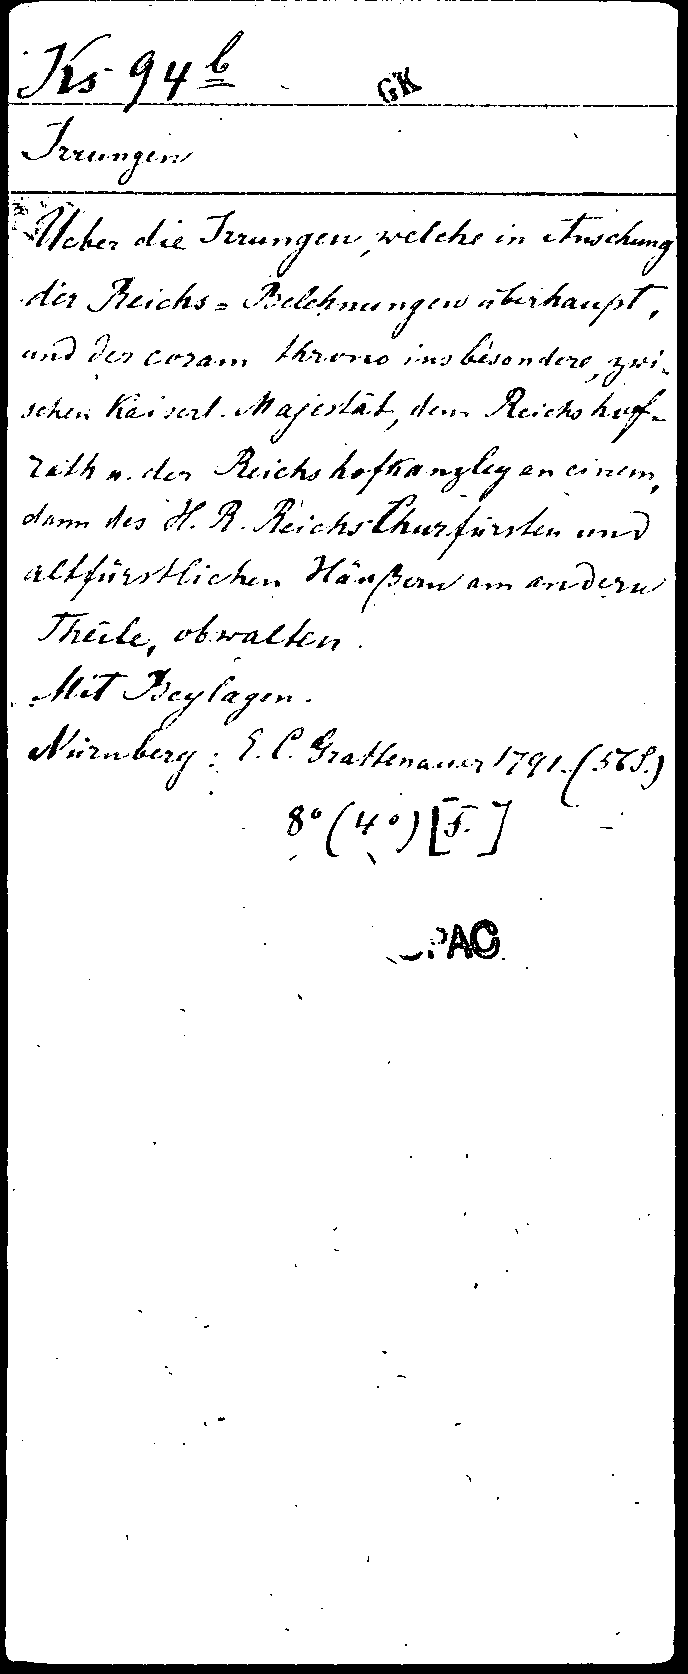 Ks 94 b
GK
Irrungen
Ueber die Irrungen, welche in Ansehung
der Reichs = Belehnungen überhaupt,
und der coram throno insbesondere, zwi-
schen Kaiserl. Majestät, dem Reichshof-
rath u. der Reichshofkanzley an einem,
dann des H. R. Reichs Churfürsten und
altfürstlichen Häußern am andern
Theile, obwalten.
Mit Beylagen.
Nürnberg: E. C. Grattenauer 1791. (56 S.)
8° (4°) [F.]
OPAC